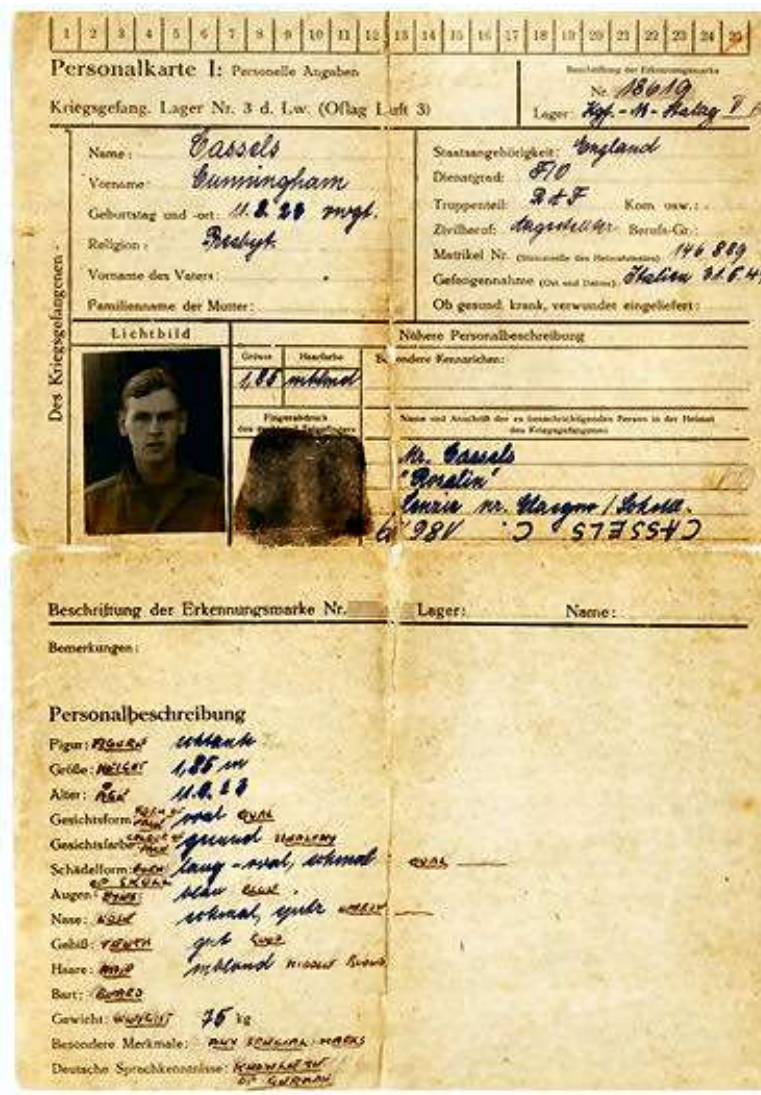 1 2 3 4 5 6 7 8 9 10 11 12 13 14 15 16 17 18 19 20 21 22 23 24 25
Personalkarte I: Personelle Angaben
Beschriftung der Erkennungsmarke
Nr. 18619
Kriegsgefang. Lager Nr. 3 d. Lw. (Oflag Luft 3)
Lager: Kgf.-M-Stalag V
Des Kriegsgefangenen
Name: Cassels
Vorname: Cunningham
Geburtstag und -ort: 11.8.23
Religion: Presbyt.
Vorname des Vaters:
Familienname der Mutter:
Staatsangehörigkeit: England
Dienstgrad: F/O
Truppenteil: RAF Kom. usw.:
Zivilberuf: Angestellter Berufs-Gr.:
Matrikel Nr. (Stammrolle des Heimatstaates) 146 889
Gefangennahme (Ort und Datum): Italien
Ob gesund, krank, verwundet eingeliefert:
Lichtbild
Nähere Personalbeschreibung
Grösse Haarfarbe Besondere Kennzeichen:
1,85 mblond
Fingerabdruck
Name und Anschrift der zu benachrichtigenden Person in der Heimat
des Kriegsgefangenen
Mr. Cassels
"Roselin"
Lenzie nr. Glasgow / Schottl.
CASSELS C. 18619
Beschriftung der Erkennungsmarke Nr. Lager: Name:
Bemerkungen:
Personalbeschreibung
Figur: FIGURE schlank
Größe: HEIGHT 1,85 m
Alter: AGE 11.8.23
Gesichtsform: FORM OF FACE oval OVAL
Gesichtsfarbe: COLOUR OF FACE gesund HEALTHY
Schädelform: FORM OF SKULL lang-oval, schmal OVAL
Augen: EYES blau BLUE
Nase: NOSE schmal, spitz NARROW
Gebiß: TEETH gut GOOD
Haare: HAIR mblond MIDDLE BLOND
Bart: BEARD
Gewicht: WEIGHT 75 kg
Besondere Merkmale: ANY SPECIAL MARKS
Deutsche Sprachkenntnisse: KNOWLEDGE OF GERMAN